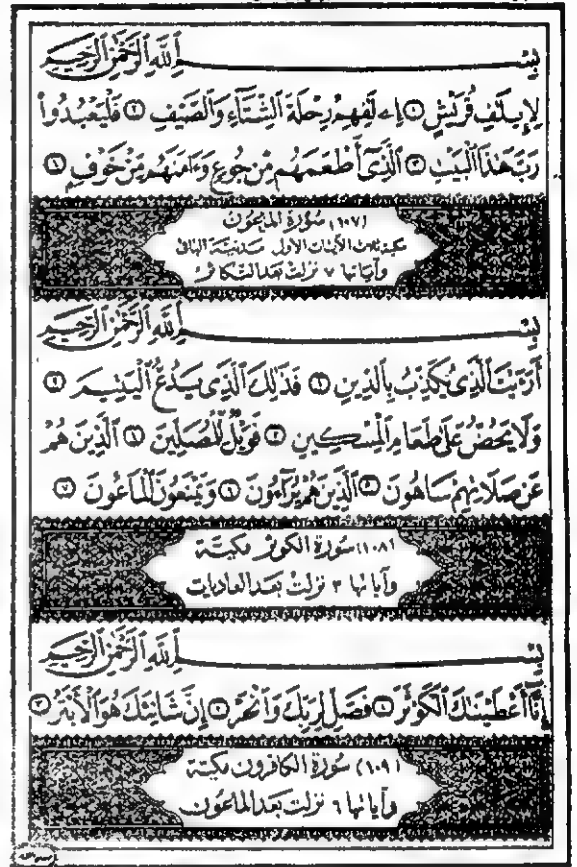 بِسْمِ اللَّهِ الرَّحْمَٰنِ الرَّحِيمِ
لِإِيلَٰفِ قُرَيْشٍ ۝١ إِۦلَٰفِهِمْ رِحْلَةَ الشِّتَآءِ وَالصَّيْفِ ۝٢ فَلْيَعْبُدُوا۟
رَبَّ هَٰذَا الْبَيْتِ ۝٣ الَّذِىٓ أَطْعَمَهُم مِّن جُوعٍ وَءَامَنَهُم مِّنْ خَوْفٍ ۝٤
(١٠٧) سُورَةُ الْمَاعُون
مكية ثلاث الآيات الأول مدنية الباقى
وآياتها ٧ نزلت بعد التكاثر
بِسْمِ اللَّهِ الرَّحْمَٰنِ الرَّحِيمِ
أَرَءَيْتَ الَّذِى يُكَذِّبُ بِالدِّينِ ۝١ فَذَٰلِكَ الَّذِى يَدُعُّ الْيَتِيمَ ۝٢
وَلَا يَحُضُّ عَلَىٰ طَعَامِ الْمِسْكِينِ ۝٣ فَوَيْلٌ لِّلْمُصَلِّينَ ۝٤ الَّذِينَ هُمْ
عَن صَلَاتِهِمْ سَاهُونَ ۝٥ الَّذِينَ هُمْ يُرَآءُونَ ۝٦ وَيَمْنَعُونَ الْمَاعُونَ ۝٧
(١٠٨) سُورَةُ الكوثر مكيّة
وآياتها ٣ نزلت بعد العاديات
بِسْمِ اللَّهِ الرَّحْمَٰنِ الرَّحِيمِ
إِنَّآ أَعْطَيْنَٰكَ الْكَوْثَرَ ۝١ فَصَلِّ لِرَبِّكَ وَانْحَرْ ۝٢ إِنَّ شَانِئَكَ هُوَ الْأَبْتَرُ ۝٣
(١٠٩) سُورَةُ الكافرون مكيّة
وآياتها ٦ نزلت بعد الماعون